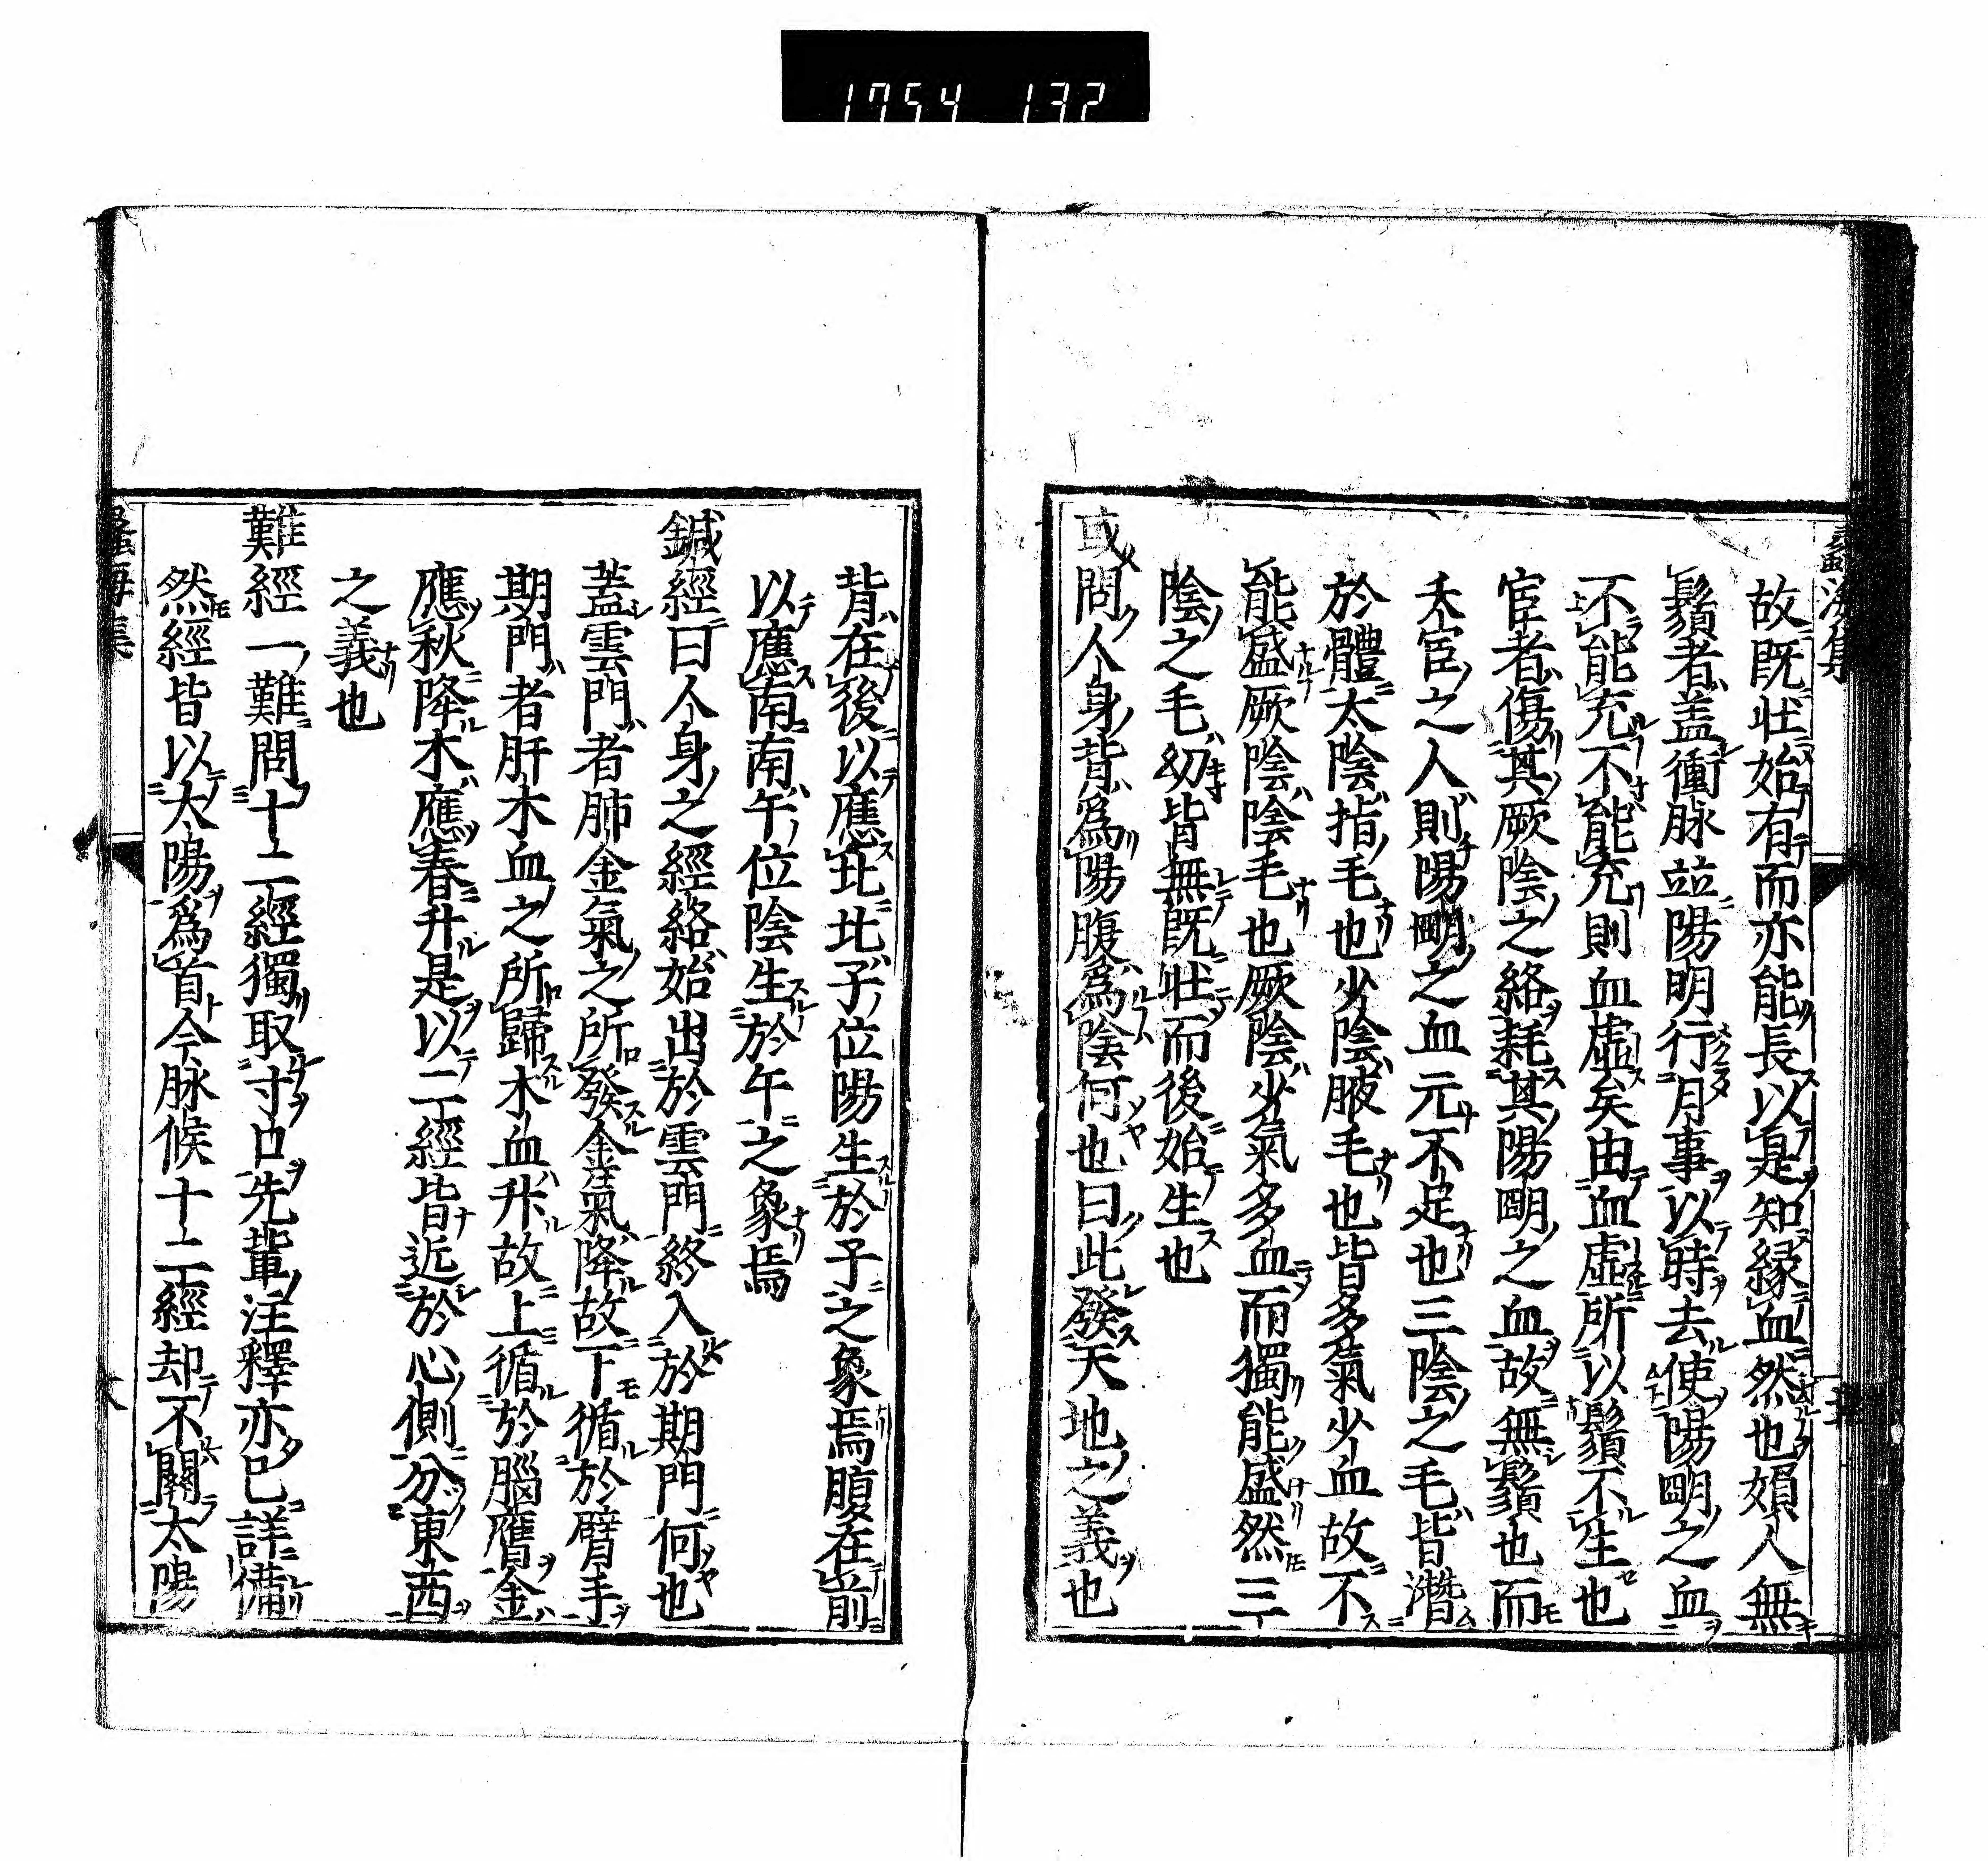 1754 132
蠡海集
故既壮始有而亦能長以是知縁血然也媍人無
鬚者盖衝脉竝陽明行月事以時去使陽朙之血
不能充不能充則血虛矣由血虛所以鬚不生也
宦者傷其厥陰之絡耗其陽朙之血故無鬚也而
夭宦之人則陽朙之血元不足也三陰之毛皆濳
於體太陰指毛也少陰腋毛也皆多氣少血故不
能盛厥陰陰毛也厥陰少氣多血而獨能盛然三
陰之毛幼皆無既壮而後始生也
或問人身背爲陽腹爲陰何也曰此發天地之義也
背在後以應北北子位陽生於子之象焉腹在前
以應南南午位陰生於午之象焉
鍼經曰人身之經絡始出於雲門終入於期門何也
蓋雲門者肺金氣之所發金氣降故下循於臂手
期門者肝木血之所歸木血升故上循於腦膺金
應秋降木應春升是以二經皆近於心側分東西
之義也
難經一難問十二經獨取寸口先輩注釋亦已詳備
然經皆以太陽爲首今脉候十二經却不關太陽